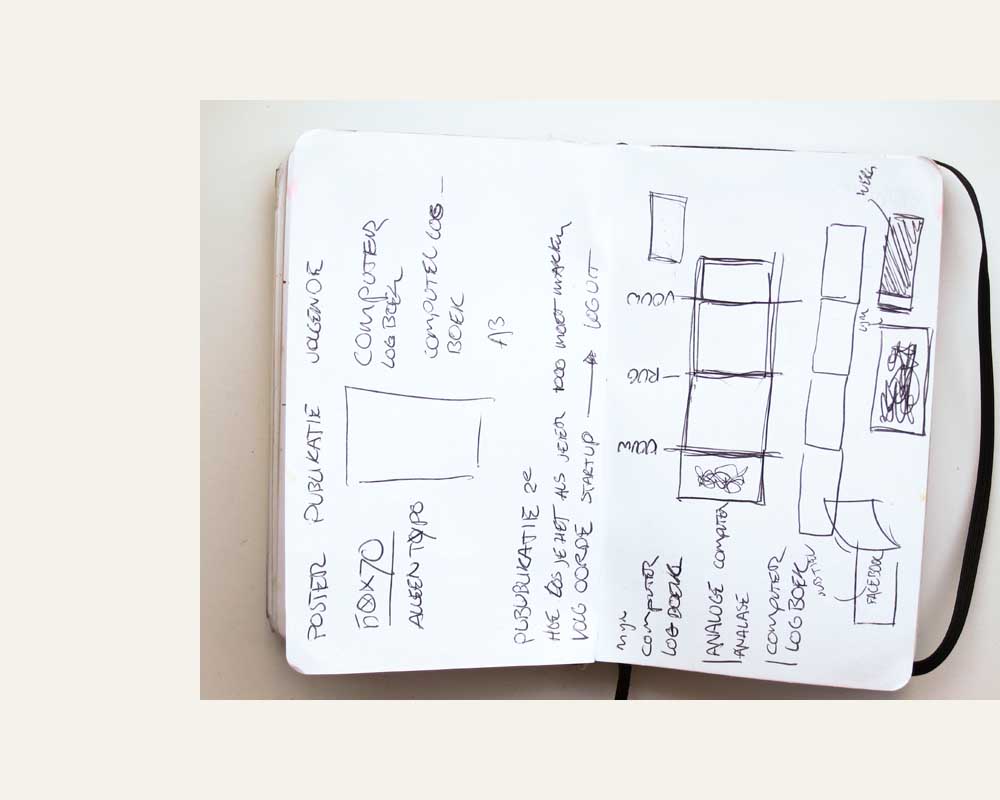 POSTER PUBLIKATIE VOLGENDE
50X70
ALLEEN TYPO
COMPUTER
LOGBOEK
COMPUTER LOG-
BOEK
A3
PUBUBLIKATIE 2e
HOE LOS JE HET ALS JE ER 1000 MOET MAKEN
VOLGOORDE STARTUP LOGOUT
VOUW
RUG
VOUW
MIJN
COMPUTER
LOGBOEK
ANALOGE COMPUTER
ANALASE
COMPUTER
LOGBOEK
FACEBOOK